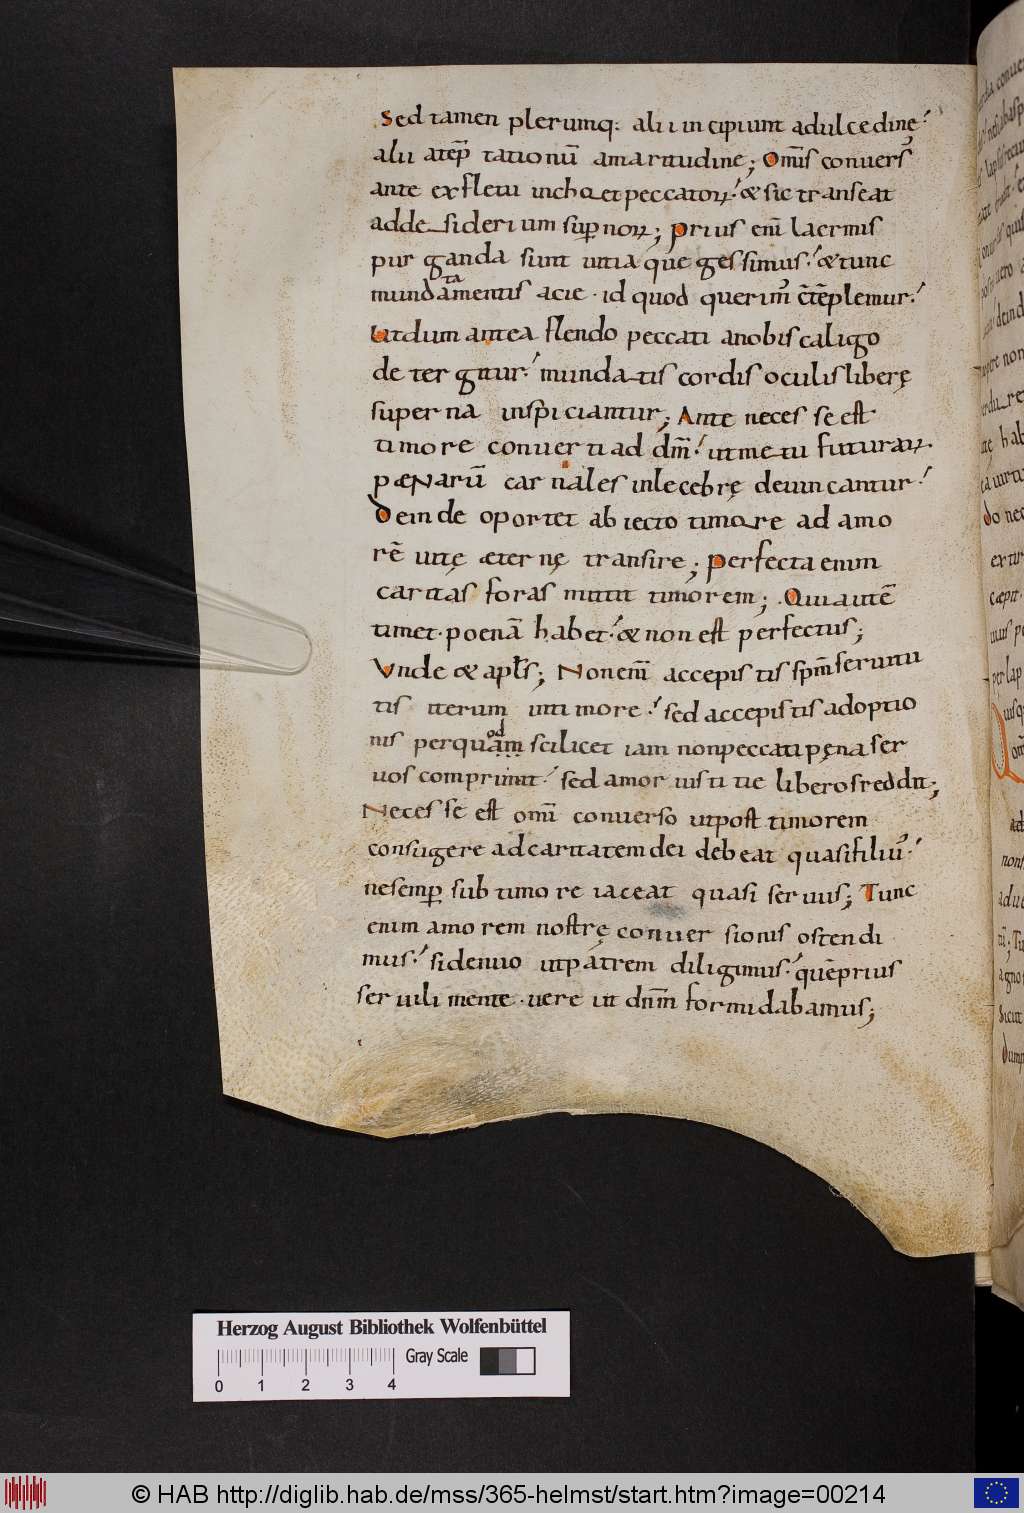 Sed tamen plerumq; alii incipiunt a dulcedine
alii a tẽptationũ amaritudine; Om̃is conuersꝰ
ante ex fletu inchoet peccatoꝝ. & sic transeat
ad desiderium sup̱noꝝ; prius eni͂ lacrimis
purganda sunt uitia que gessimus. & tunc
munda ta mentis acie. id quod querimꝰ c̃tẽplemur.
Ut dum antea flendo peccati a nobis caligo
detergitur. mundatis cordis oculis liberę
superna inspiciantur; Ante necesse est
timore conuerti ad dm̃. ut metu futuraꝝ
pænarũ carnales inlecebrę deuincantur.
Deinde oportet abiecto timore ad amo
rẽ uitę æternę transire; perfecta enim
caritas foras mittit timorem; Qui autẽ
timet. poenã habet. & non est perfectus;
Vnde & apl̃s; Non eni͂ accepistis sp̃m seruitu
tis iterum in timore. sed accepistis adoptio
nis per quam od scilicet iam non peccati pęna ser
uos comprimit. sed amor iustitię liberos reddit;
Necesse est omi͂ conuerso ut post timorem
consugere ad caritatem dei debeat quasi filiuꝰ.
ne semp̱ sub timore iaceat quasi seruus; Tunc
enim amorem nostrę conuersionis ostendi
mus. si denuo ut patrem diligimus. quẽ prius
seruili mente. uere ut dnm̃ formidabamus;
Herzog August Bibliothek Wolfenbüttel
Gray Scale
0 1 2 3 4
© HAB http://diglib.hab.de/mss/365-helmst/start.htm?image=00214